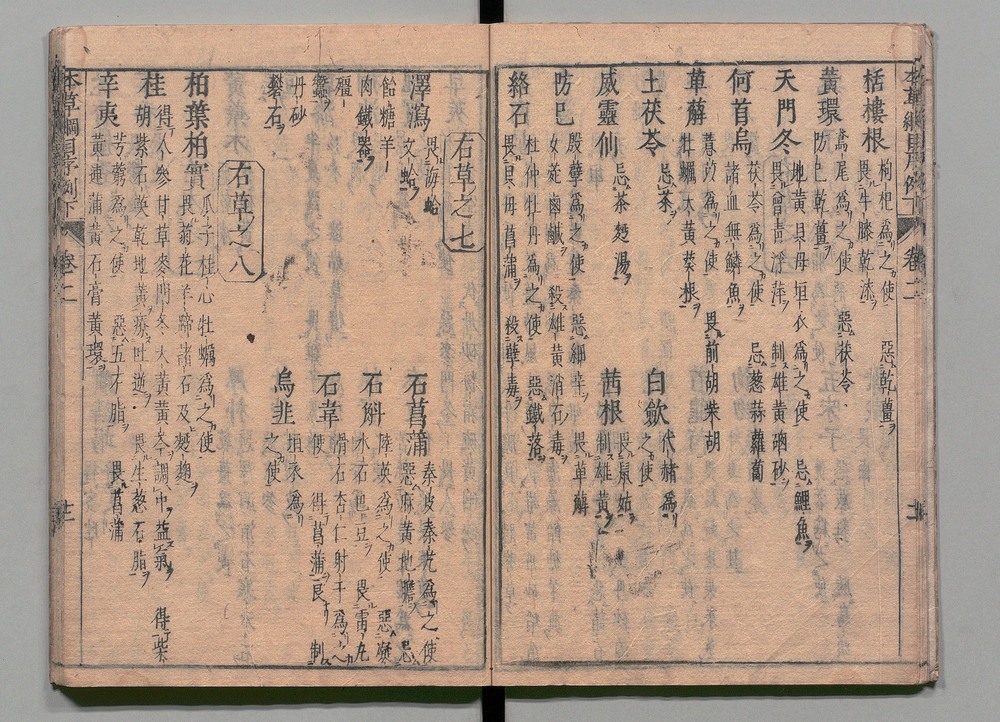 本草綱目序例下 卷二 十二
栝樓根 枸杞爲之使 惡乾薑
畏牛膝乾漆
黃環 鳶尾爲之使 惡茯苓
防已乾薑
天門冬 地黃貝母垣衣爲之使 忌鯉魚
畏曾青浮萍 制雄黃硇砂
何首烏 茯苓爲之使 忌葱蒜蘿蔔
諸血無鱗魚
萆薢 薏苡爲之使 畏前胡柴胡
牡蠣大黃葵根
土茯苓 忌茶 白歛 代赭爲
之使
威靈仙 忌茶麪湯 茜根 畏鼠姑
制雄黃
防巳 殷孽爲之使 惡細辛 畏萆薢
女菀鹵鹹 殺雄黃消石毒
絡石 杜仲牡丹爲之使 惡鐵落
畏貝母菖蒲 殺孽毒
右草之七
澤瀉 畏海蛤 石菖蒲 秦皮秦艽爲之使
文蛤 惡麻黃地膽 忌
飴糖羊 石斛 陸英爲之使 惡凝
肉鐵器 水石巴豆 畏雷丸
殭 石韋 滑石杏仁射干爲之
蠶 使 得菖蒲良 制
丹砂 烏韭 垣衣爲
礬石 之使
右草之八
柏葉柏實 瓜子桂心牡蠣爲之使
畏菊花羊蹄諸石及麪麴
桂 得人參甘草麥門冬大黃黃芩調中益氣 得柴
胡紫石英乾地黃療吐逆 畏生葱石脂
辛夷 芎藭爲之使 惡五才脂 畏菖蒲
黃連蒲黃石膏黃環
本草綱目序例下 卷二 十二